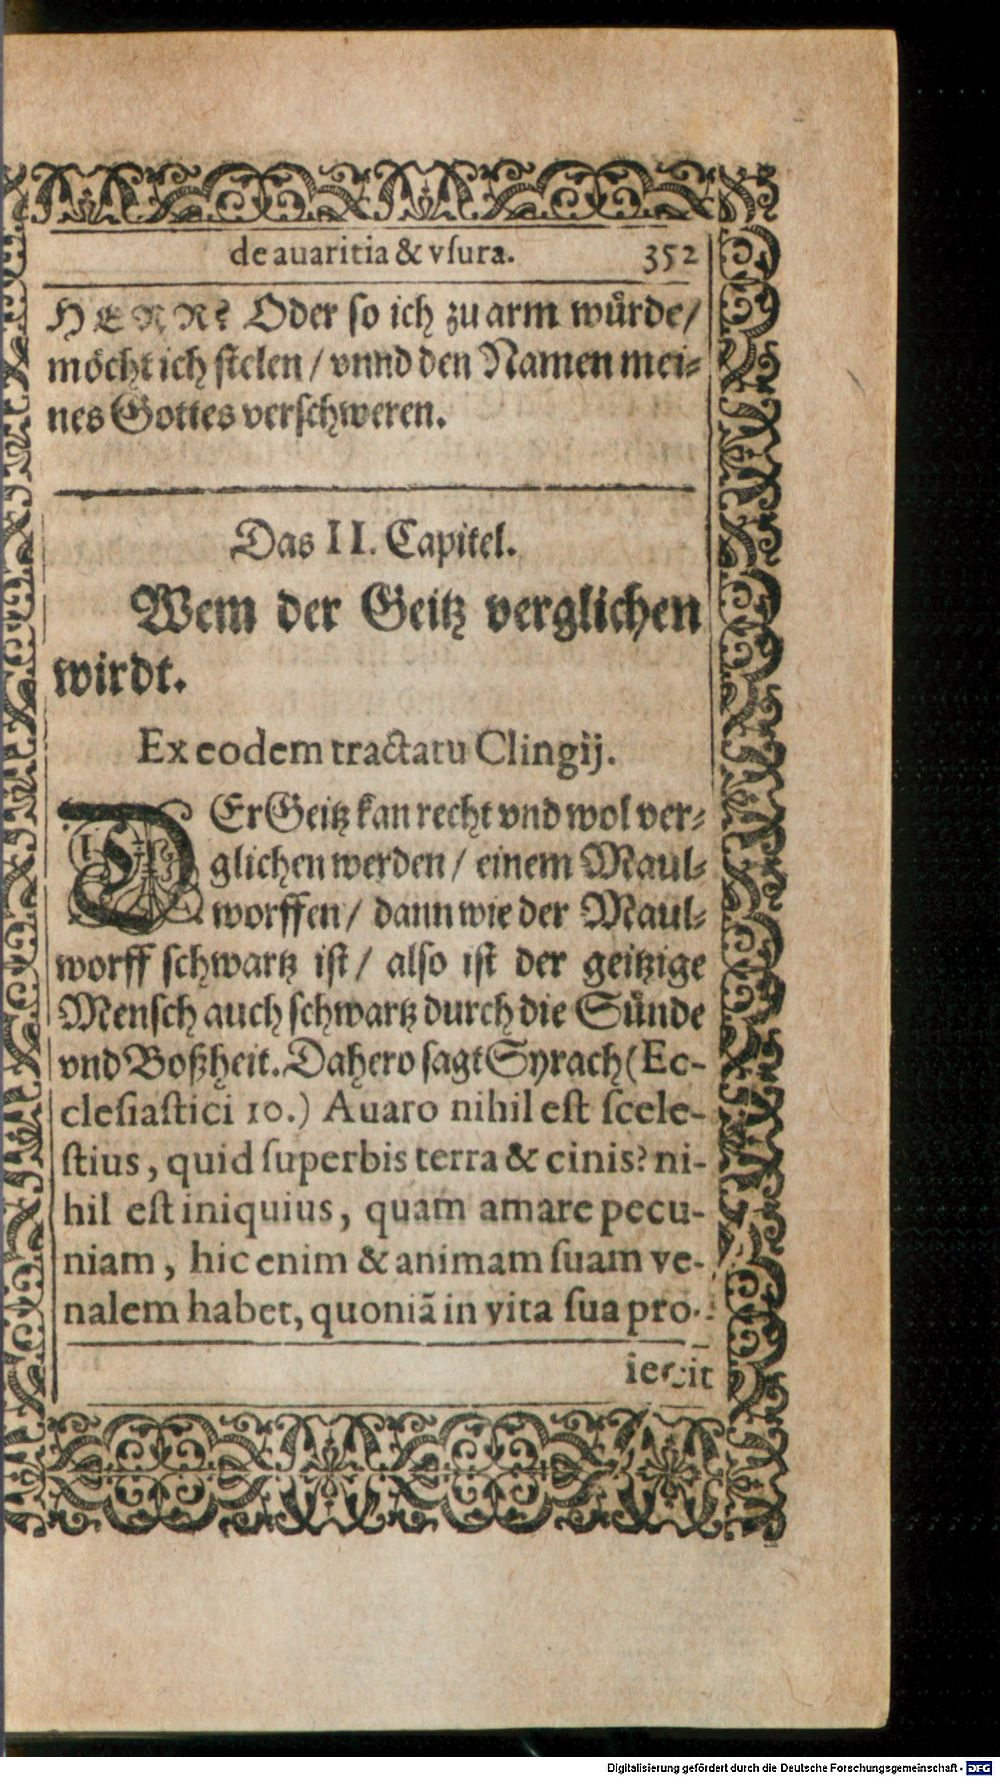 de avaritia & vſura. 352
HERR? Oder ſo ich zu arm wuͤrde/
moͤcht ich ſtelen / vnnd den Namen mei⸗
nes Gottes verſchweren.
Das II. Capitel.
Wem der Geitz verglichen
wirdt.
Ex eodem tractatu Clingij.
DEr Geitz kan recht vnd wol ver⸗
glichen werden / einem Maul⸗
worffen / dann wie der Maul⸗
worff ſchwartz iſt / alſo iſt der geitzige
Menſch auch ſchwartz durch die Suͤnde
vnd Boßheit. Dahero ſagt Syrach (Ec-
cleſiaſtici 10.) Avaro nihil eſt ſcele-
ſtius, quid ſuperbis terra & cinis? ni-
hil eſt iniquius, quam amare pecu-
niam, hic enim & animam ſuam ve-
nalem habet, quoniã in vita ſua pro-
iecit
Digitalisierung gefördert durch die Deutsche Forschungsgemeinschaft - DFG